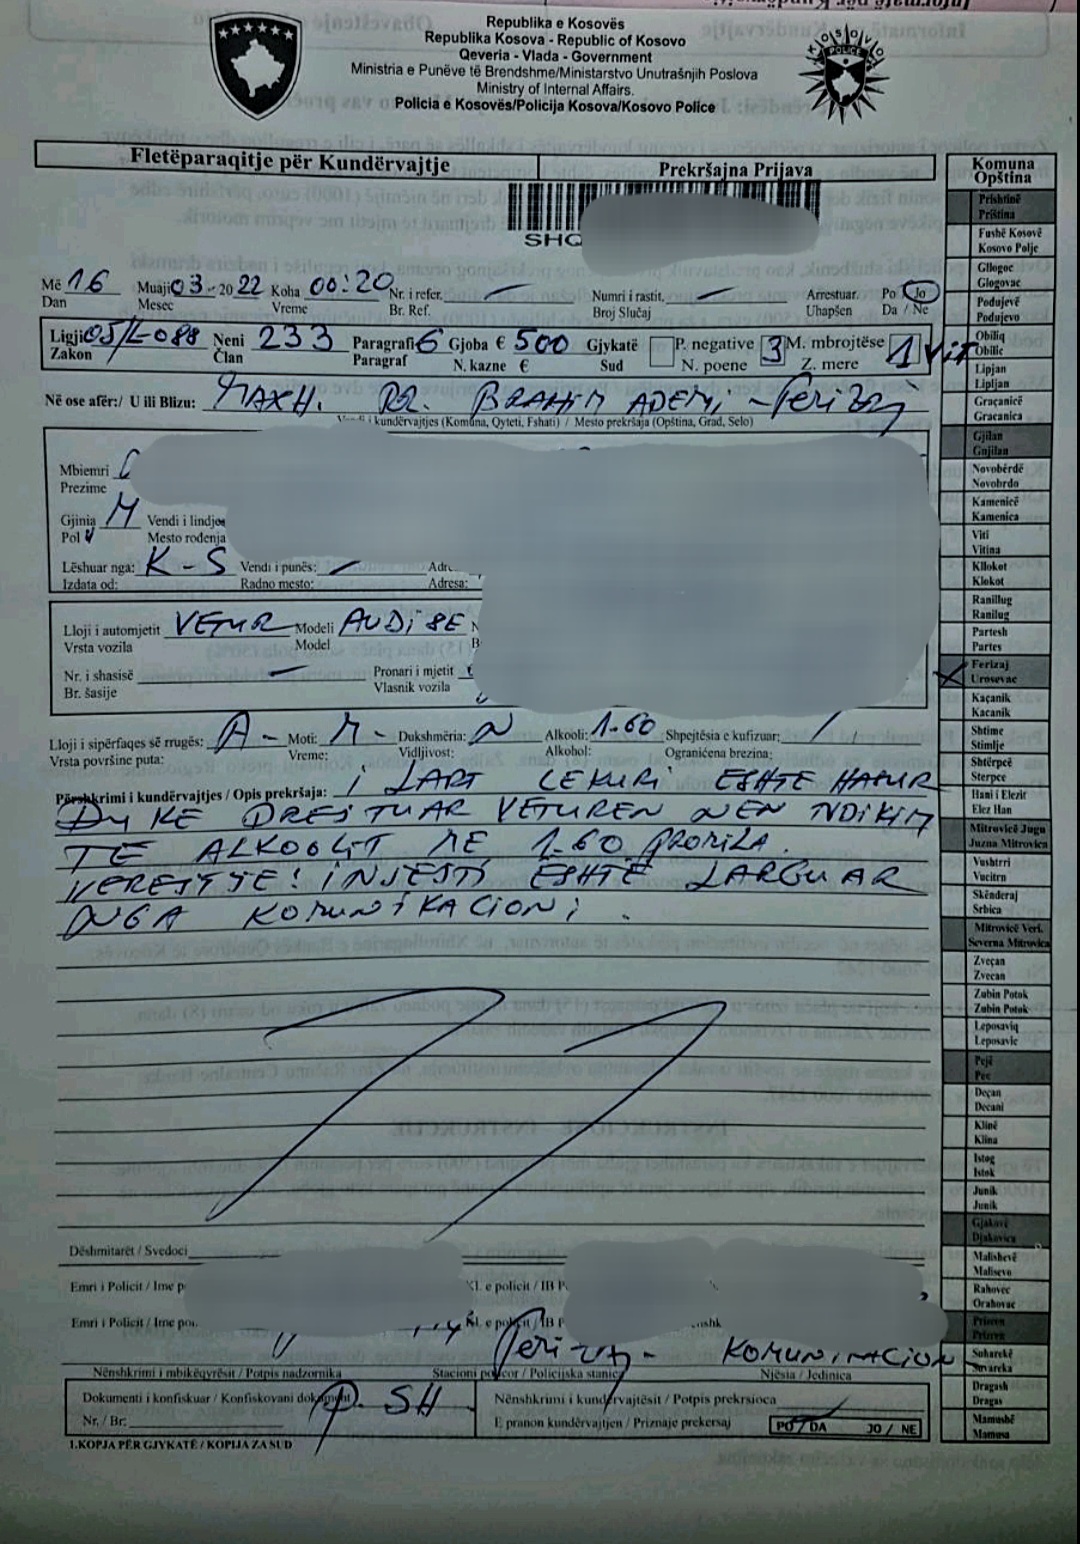 Republika e Kosovës
Republika Kosova - Republic of Kosovo
Qeveria - Vlada - Government
Ministria e Punëve të Brendshme/Ministarstvo Unutrašnjih Poslova
Ministry of Internal Affairs.
Policia e Kosovës/Policija Kosova/Kosovo Police
KOSOVO
POLICE
Fletëparaqitje për Kundërvajtje Prekršajna Prijava
SHQ
Më 16 Muaji 03 - 20 22 Koha 00:20 Nr. i refer. Numri i rastit. Arrestuar. Po Jo
Dan Mesec Vreme Br. Ref. Broj Slučaj Uhapšen Da / Ne
Ligji 05/L-088 Neni 233 Paragrafi 6 Gjoba € 500 Gjykatë P. negative 3 M. mbrojtëse 1 Vit
Zakon Član Paragraf N. kazne € Sud N. poene Z. mere
Në ose afër:/ U ili Blizu: MAXH. RR. BRAHIM ADEMI - Ferizaj
Vendi i kundërvajtjes (Komuna, Qyteti, Fshati) / Mesto prekršaja (Opština, Grad, Selo)
Mbiemri
Prezime
Gjinia M Vendi i lindjes
Pol Mesto rođenja
Lëshuar nga: K-S Vendi i punës:
Izdata od: Radno mesto: Adresa:
Lloji i automjetit VETUR Modeli AUDI
Vrsta vozila Model
Nr. i shasisë Pronari i mjetit
Br. šasije Vlasnik vozila
Lloji i sipërfaqes së rrugës: A - Moti: M - Dukshmëria: N Alkooli: 1.60 Shpejtësia e kufizuar:
Vrsta površine puta: Vreme: Vidljivost: Alkohol: Ograničena brzina:
Përshkrimi i kundërvajtjes / Opis prekršaja: I LART CEKURI ESHTE HASUR
DUKE DREJTUAR VETUREN NEN NDIKIM
TE ALKOOLIT ME 1.60 PROMILA.
VEREJTJE! I NJEJTI ËSHTË LARGUAR
NGA KOMUNIKACIONI.
Dëshmitarët / Svedoci
Emri i Policit / Ime
Emri i Policit / Ime
Ferizaj - KOMUNIKACION
Nënshkrimi i mbikëqyrësit / Potpis nadzornika Stacioni policor / Policijska stanica Njësia / Jedinica
Dokumenti i konfiskuar / Konfiskovani dokument P. SH Nënshkrimi i kundërvajtësit / Potpis prekrsioca
Nr. / Br: E pranon kundërvajtjen / Priznaje prekersaj PO / DA JO / NE
1.KOPJA PËR GJYKATË / KOPIJA ZA SUD
Komuna
Opština
Prishtinë
Priština
Fushë Kosovë
Kosovo Polje
Gllogoc
Glogovac
Podujevë
Podujevo
Obiliq
Obilic
Lipjan
Lipljan
Graçanicë
Gracanica
Gjilan
Gnjilan
Novobërdë
Novobrdo
Kamenicë
Kamenica
Viti
Vitina
Kllokot
Klokot
Ranillug
Ranilug
Partesh
Partes
Ferizaj
Urosevac
Kaçanik
Kacanik
Shtime
Stimlje
Shtërpcë
Sterpce
Hani i Elezit
Elez Han
Mitrovicë Jugu
Juzna Mitrovica
Vushtrri
Vucitrn
Skënderaj
Srbica
Mitrovicë Veri.
Severna Mitrovica
Zveçan
Zvecan
Zubin Potok
Zubin Potok
Leposaviq
Leposavic
Pejë
Pec
Deçan
Decani
Klinë
Klina
Istog
Istok
Junik
Junik
Gjakovë
Djakovica
Malishevë
Malisevo
Rahovec
Orahovac
Prizren
Prizren
Suharekë
Suvareka
Dragash
Dragas
Mamushë
Mamusa